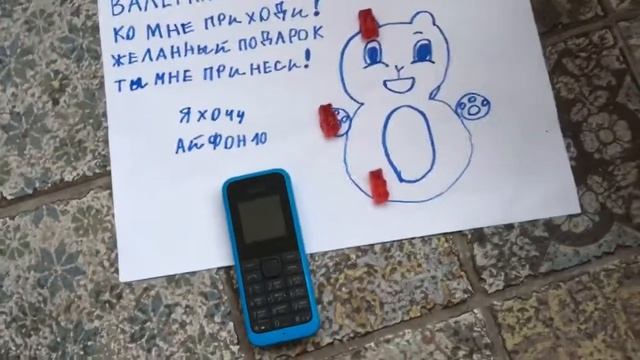 КО МНЕ ПРИХОДИ!
ЖЕЛАННЫЙ ПОДАРОК
ТЫ МНЕ ПРИНЕСИ!
Я ХОЧУ
АЙФОН 10